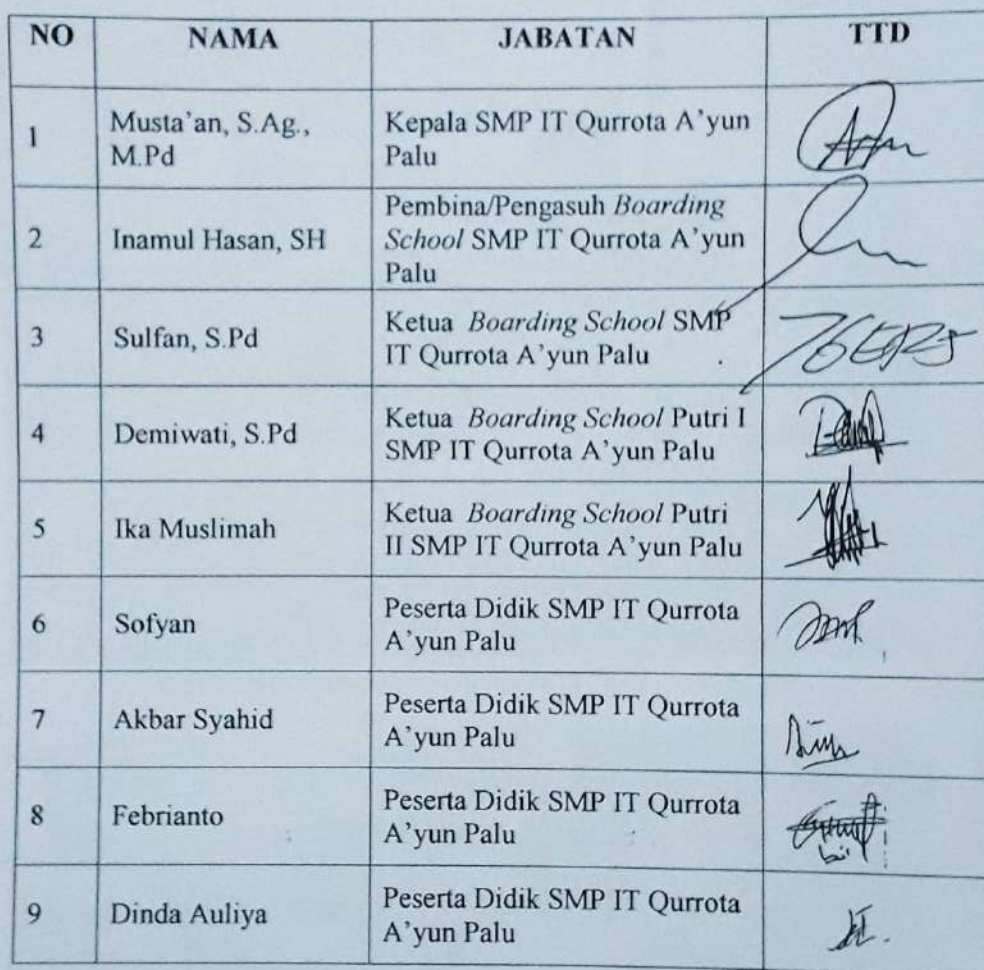 NO NAMA JABATAN TTD
1 Musta'an, S.Ag., M.Pd Kepala SMP IT Qurrota A'yun Palu
2 Inamul Hasan, SH Pembina/Pengasuh Boarding School SMP IT Qurrota A'yun Palu
3 Sulfan, S.Pd Ketua Boarding School SMP IT Qurrota A'yun Palu
4 Demiwati, S.Pd Ketua Boarding School Putri I SMP IT Qurrota A'yun Palu
5 Ika Muslimah Ketua Boarding School Putri II SMP IT Qurrota A'yun Palu
6 Sofyan Peserta Didik SMP IT Qurrota A'yun Palu
7 Akbar Syahid Peserta Didik SMP IT Qurrota A'yun Palu
8 Febrianto Peserta Didik SMP IT Qurrota A'yun Palu
9 Dinda Auliya Peserta Didik SMP IT Qurrota A'yun Palu